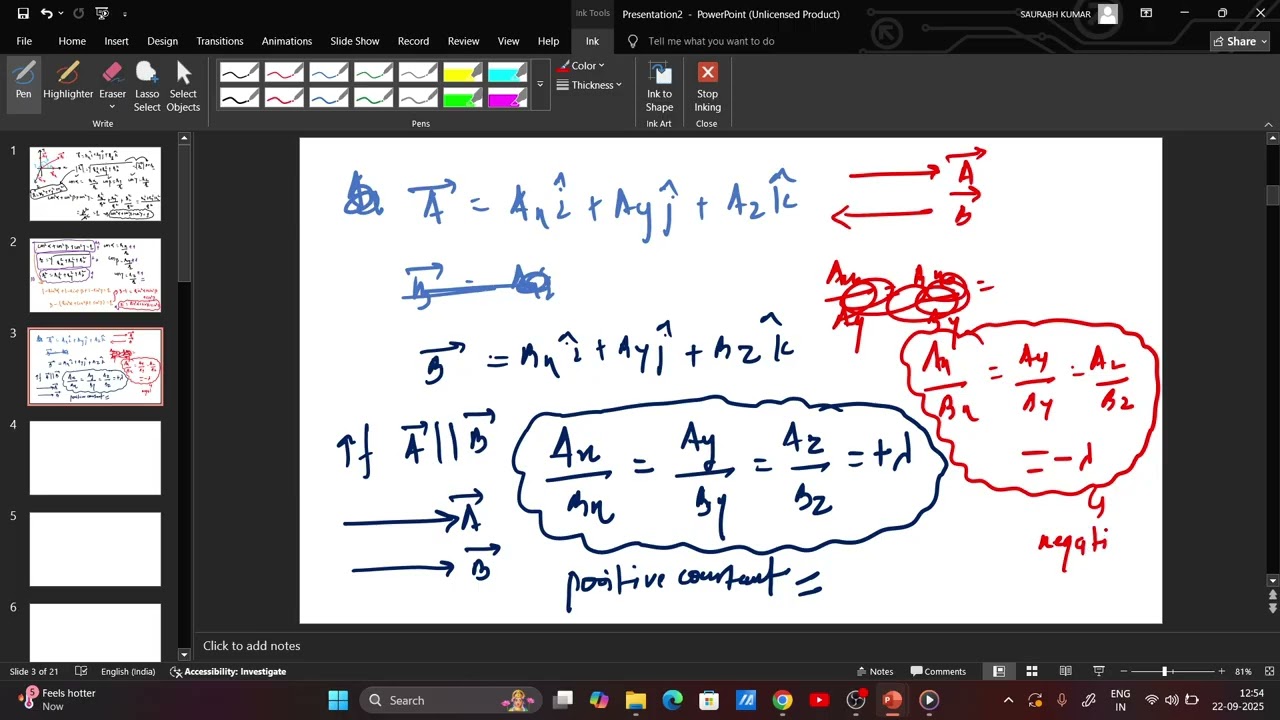 Presentation2 - PowerPoint (Unlicensed Product)
Ink Tools
SAURABH KUMAR
File Home Insert Design Transitions Animations Slide Show Record Review View Help Ink Tell me what you want to do
Share
Pen Highlighter Eraser Lasso Select Select Objects
Color
Thickness
Ink to Shape
Stop Inking
Write Pens Ink Art Close
1
2
3
4
5
6
A = Axî + Ayĵ + Azk̂
A
B
B = Bxî + Ayĵ + Bzk̂
Ax/Bx = Ay/By = Az/Bz
= -λ
negati
If A || B
Ax/Bx = Ay/By = Az/Bz = +λ
A
B
positive constant =
Click to add notes
Slide 3 of 21 English (India) Accessibility: Investigate Notes Comments 81%
5 Feels hotter
Now
Search
ENG
IN
12:54
22-09-2025